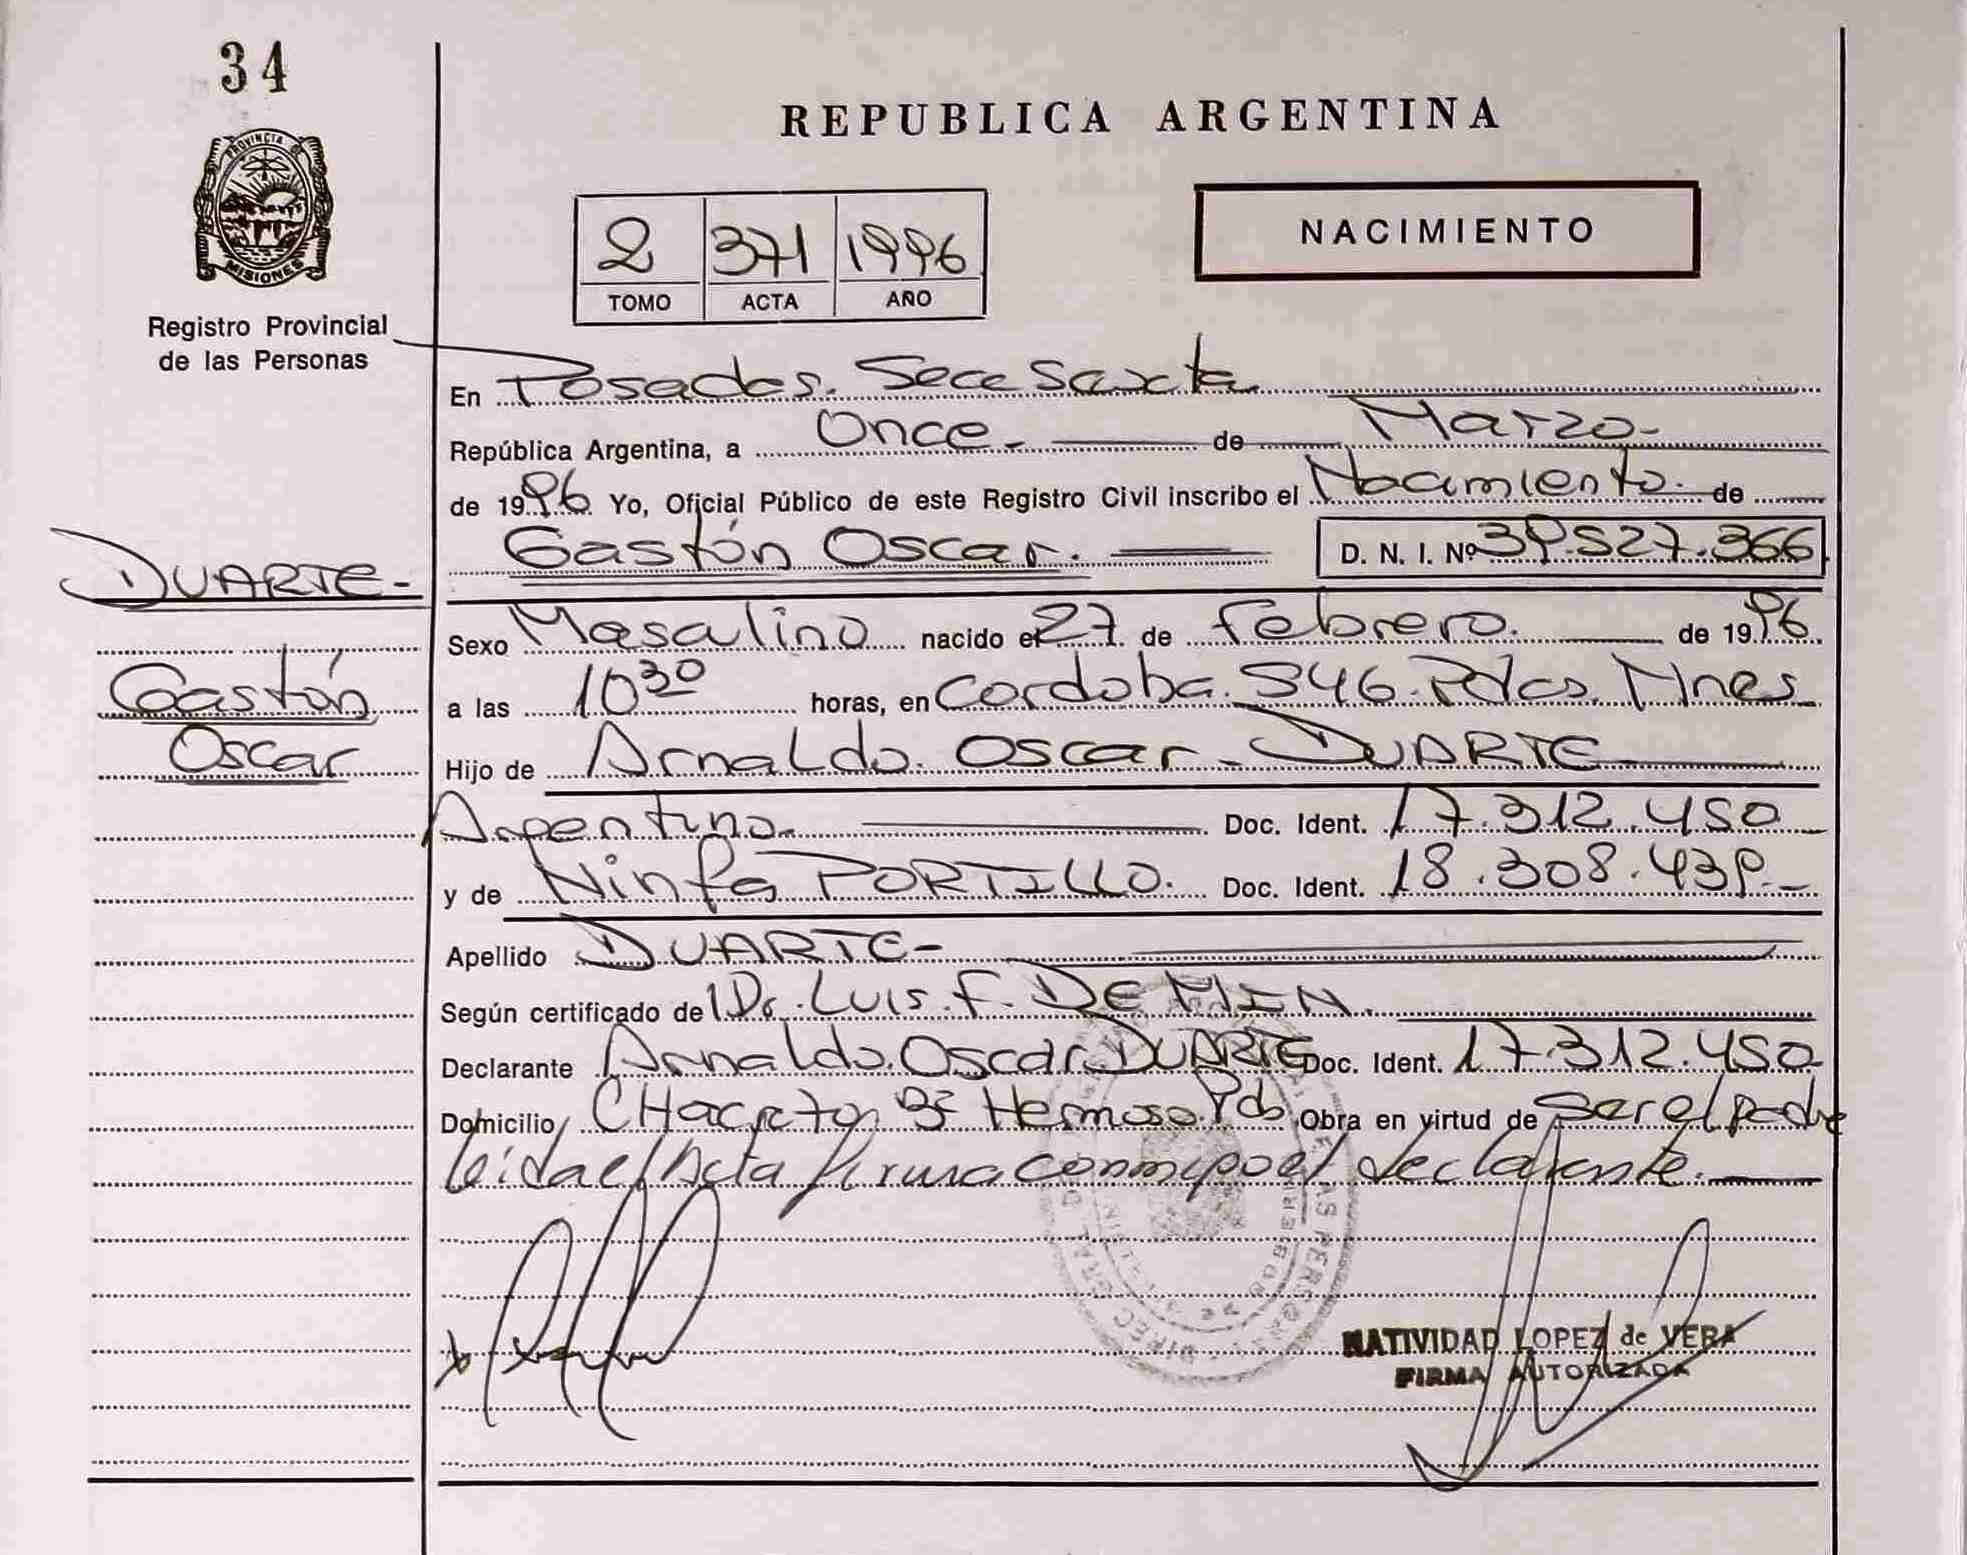 34
PROVINCIA DE
MISIONES
Registro Provincial
de las Personas
DUARTE-
Gastón
Oscar
REPUBLICA ARGENTINA
2 371 1996
TOMO ACTA AÑO
NACIMIENTO
En Posadas. Secc Sexta
República Argentina, a Once de Marzo-
de 1996 Yo, Oficial Público de este Registro Civil inscribo el Nacimiento. de
Gastón Oscar. D. N. I. Nº 39.527.366
Sexo Masculino nacido el 27 de Febrero. de 1996.
a las 10 30 horas, en Cordoba. 546. Pdas. Mnes
Hijo de Arnaldo Oscar - DUARTE
Argentino. Doc. Ident. 17.312.450
y de Ninfa PORTILLO. Doc. Ident. 18.308.439.-
Apellido DUARTE-
Según certificado de Dr. LUIS. F. DE MIN.
Declarante Arnaldo Oscar DUARTE Doc. Ident. 17.312.450
Domicilio Hermoso. Pdas Obra en virtud de ser el padre
leida el Acta firma conmigo el declarante.
NATIVIDAD LOPEZ de VERA
FIRMA AUTORIZADA